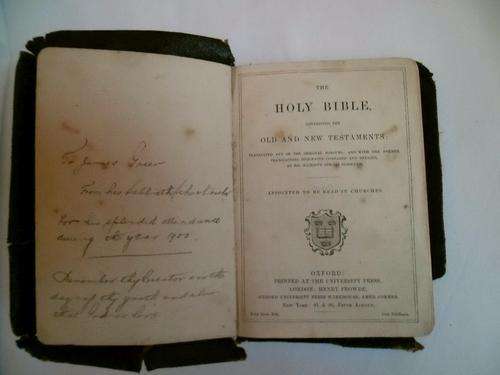 To James Greer
From his
for his splendid attendance
during the year
Remember thy Creator in the
days of thy youth
THE
HOLY BIBLE,
CONTAINING THE
OLD AND NEW TESTAMENTS:
TRANSLATED OUT OF THE ORIGINAL TONGUES; AND WITH THE FORMER
TRANSLATIONS DILIGENTLY COMPARED AND REVISED,
BY HIS MAJESTY'S SPECIAL COMMAND.
APPOINTED TO BE READ IN CHURCHES.
OXFORD:
PRINTED AT THE UNIVERSITY PRESS.
LONDON: HENRY FROWDE,
OXFORD UNIVERSITY PRESS WAREHOUSE, AMEN CORNER.
NEW YORK: